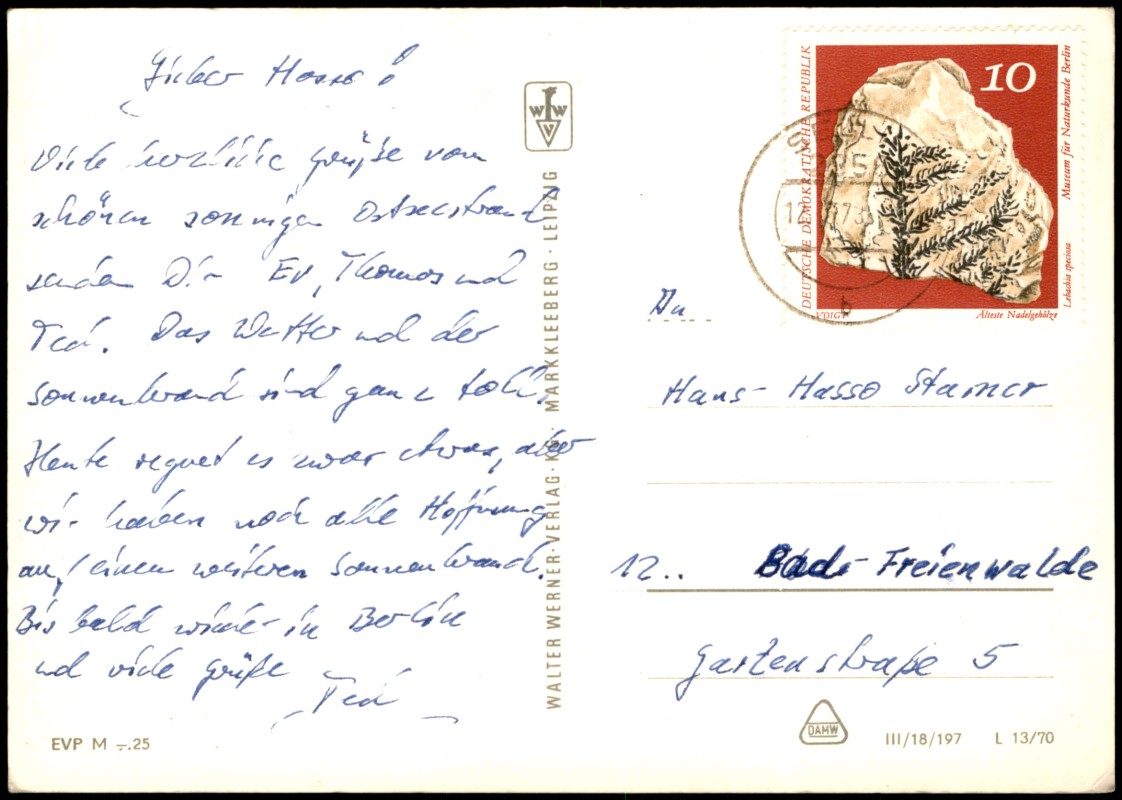 Lieber Hasso!
Viele herzliche Grüße vom
schönen sonnigen Ostseestrand
senden Dir Ev, Thomas und
Ted. Das Wetter und der
Sonnenbrand sind ganz toll.
Heute regnet es zwar etwas, aber
wir haben noch alle Hoffnung
auf einen weiteren Sonnenbrand.
Bis bald wieder in Berlin
und viele Grüße
Ted
EVP M –.25
WWV
WALTER WERNER-VERLAG·KG· MARKKLEEBERG · LEIPZIG
10
DEUTSCHE DEMOKRATISCHE REPUBLIK
Museum für Naturkunde Berlin
Lebachia speciosa
VOIGT
Älteste Nadelgehölze
b
An
Hans-Hasso Stamer
12.. Bad-Freienwalde
Gartenstraße 5
DAMW
III/18/197 L 13/70